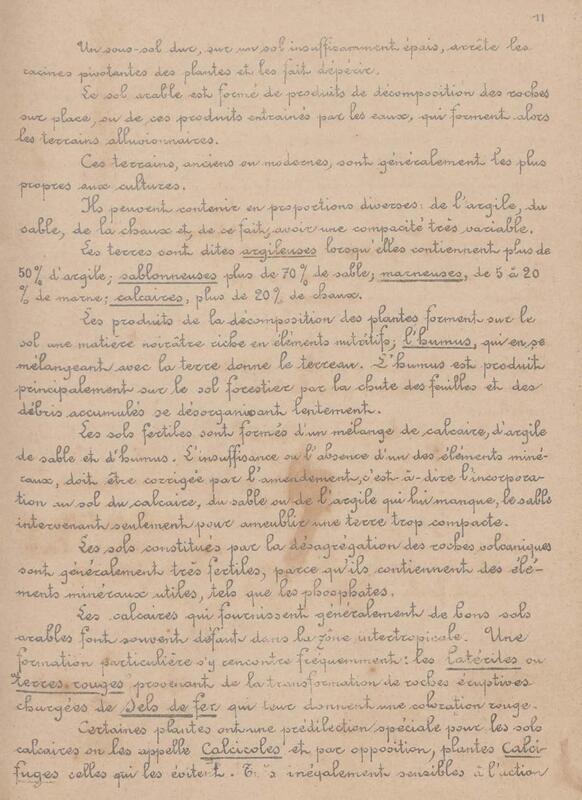 11
Un sous-sol dur, sur un sol insuffisamment épais, arrête les
racines pivotantes des plantes et les fait dépérir.
Le sol arable est formé de produits de décomposition des roches
sur place, ou de ces produits entrainés par les eaux, qui forment alors
les terrains alluvionnaires.
Ces terrains, anciens ou modernes, sont généralement les plus
propres aux cultures.
Ils peuvent contenir en proportions diverses: de l'argile, du
sable, de la chaux et, de ce fait, avoir une compacité très variable.
Les terres sont dites argileuses lorsqu'elles contiennent plus de
50% d'argile; sablonneuses plus de 70% de sable; marneuses, de 5 à 20
% de marne; calcaires, plus de 20% de chaux.
Les produits de la décomposition des plantes forment sur le
sol une matière noirâtre riche en éléments nutritifs; l'humus, qui en se
mélangeant avec la terre donne le terreau. L'humus est produit
principalement sur le sol forestier par la chute des feuilles et des
débris accumulés se désorganisant lentement.
Les sols fertiles sont formés d'un mélange de calcaire, d'argile
de sable et d'humus. L'insuffisance ou l'absence d'un des éléments miné-
raux, doit être corrigée par l'amendement, c'est-à-dire l'incorpora-
tion au sol du calcaire, du sable ou de l'argile qui lui manque, le sable
intervenant seulement pour ameublir une terre trop compacte.
Les sols constitués par la désagrégation des roches volcaniques
sont généralement très fertiles, parce qu'ils contiennent des élé-
ments minéraux utiles, tels que les phosphates.
Les calcaires qui fournissent généralement de bons sols
arables font souvent défaut dans la zône intertropicale. Une
formation particulière s'y rencontre fréquemment: les latérites ou
"terres rouges" provenant de la transformation de roches éruptives
chargées de Sels de fer qui leur donnent une coloration rouge.
Certaines plantes ont une prédilection spéciale pour les sols
calcaires on les appelle Calcicoles et par opposition, plantes Calci-
fuges celles qui les évitent. inégalement sensibles à l'action